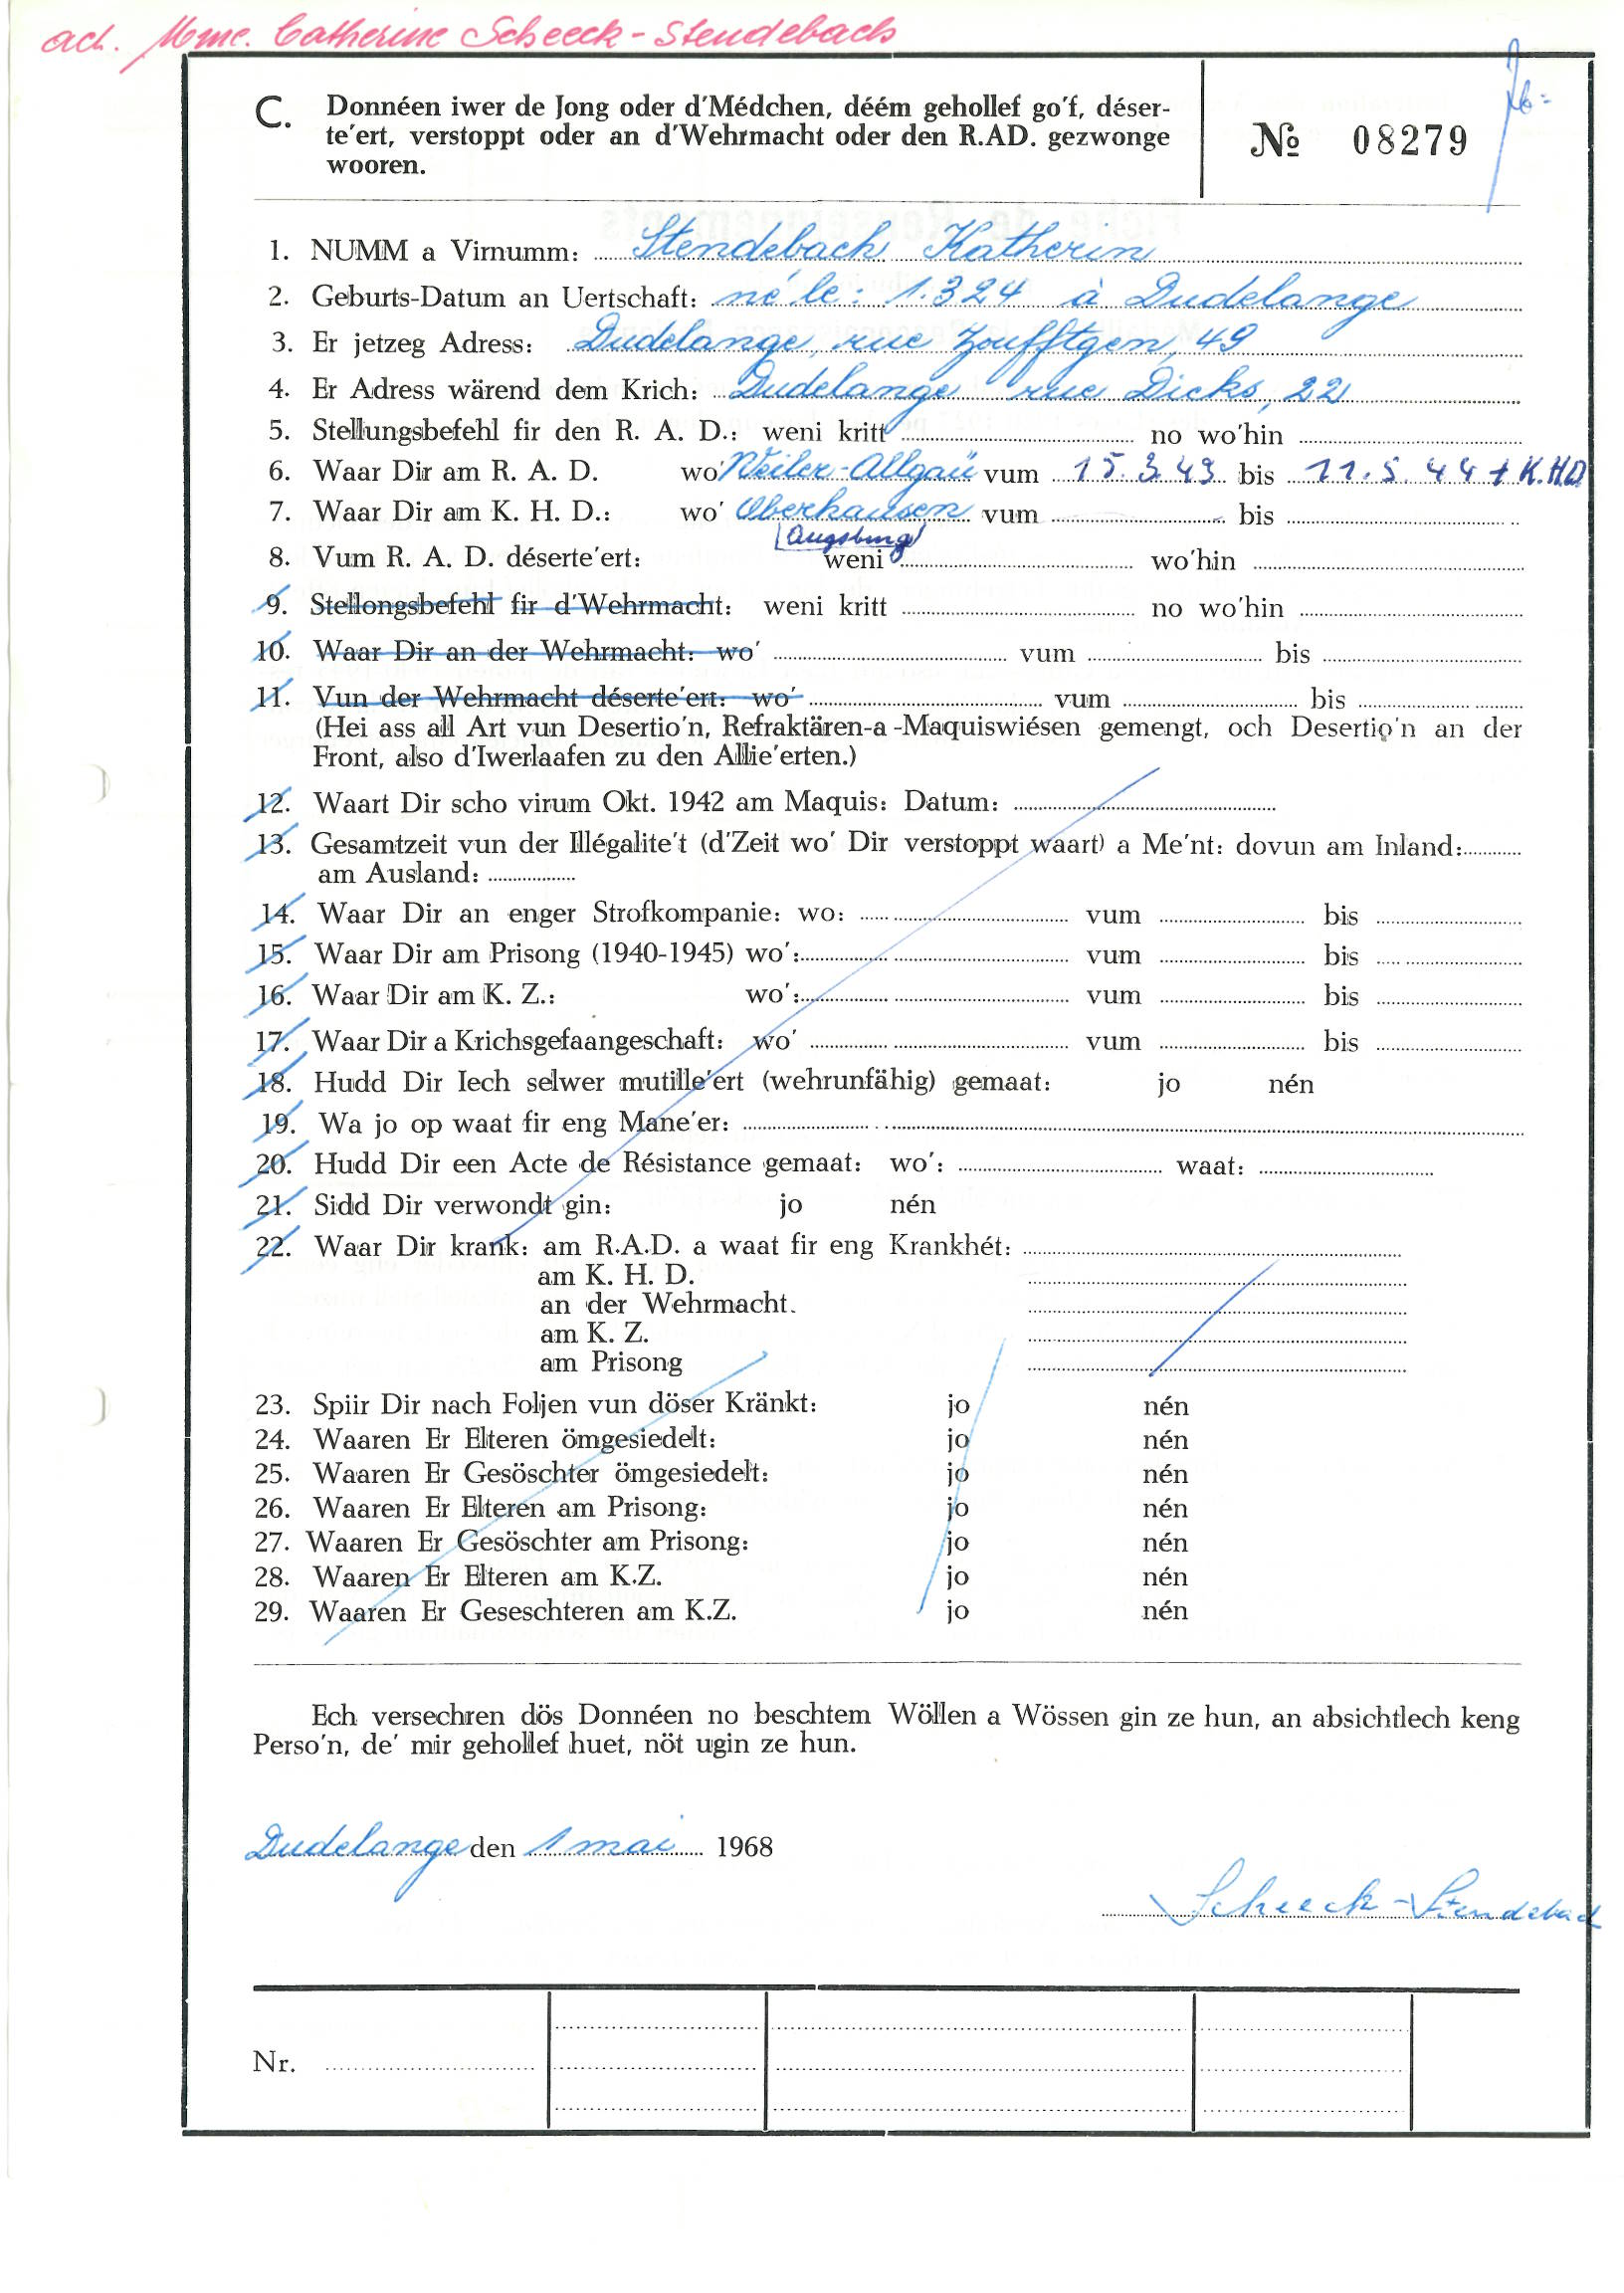 act. Mme. Catherine Scheeck-Stendebach
C. Donnéen iwer de Jong oder d'Médchen, déém gehollef go'f, déser-
te'ert, verstoppt oder an d'Wehrmacht oder den R.AD. gezwonge
wooren.
№ 08279
1. NUMM a Virnumm: Stendebach Katherin
2. Geburts-Datum an Uertschaft: né le: 1.3 24 à Dudelange
3. Er jetzeg Adress: Dudelange, rue Zoufftgen, 49
4. Er Adress wärend dem Krich: Dudelange rue Dicks, 22
5. Stellungsbefehl fir den R. A. D.: weni kritt no wo'hin
6. Waar Dir am R. A. D. wo' Weiler-Allgäu vum 15.3.43 bis 11.5.44 + K.H.D
7. Waar Dir am K. H. D.: wo' Oberhausen vum bis
(Augsburg)
8. Vum R. A. D. déserte'ert: weni wo'hin
9. Stellongsbefehl fir d'Wehrmacht: weni kritt no wo'hin
10. Waar Dir an der Wehrmacht: wo' vum bis
11. Vun der Wehrmacht déserte'ert: wo' vum bis
(Hei ass all Art vun Desertio'n, Refraktären-a-Maquiswiésen gemengt, och Desertio'n an der
Front, also d'Iwerlaafen zu den Allie'erten.)
12. Waart Dir scho virum Okt. 1942 am Maquis: Datum:
13. Gesamtzeit vun der Illégalite't (d'Zeit wo' Dir verstoppt waart) a Me'nt: dovun am Inland:
am Ausland:
14. Waar Dir an enger Strofkompanie: wo: vum bis
15. Waar Dir am Prisong (1940-1945) wo': vum bis
16. Waar Dir am K. Z.: wo': vum bis
17. Waar Dir a Krichsgefaangeschaft: wo' vum bis
18. Hudd Dir Iech selwer mutille'ert (wehrunfähig) gemaat: jo nén
19. Wa jo op waat fir eng Mane'er:
20. Hudd Dir een Acte de Résistance gemaat: wo': waat:
21. Sidd Dir verwondt gin: jo nén
22. Waar Dir krank: am R.A.D. a waat fir eng Krankhét:
am K. H. D.
an der Wehrmacht.
am K. Z.
am Prisong
23. Spiir Dir nach Foljen vun döser Kränkt: jo nén
24. Waaren Er Elteren ömgesiedelt: jo nén
25. Waaren Er Gesöschter ömgesiedelt: jo nén
26. Waaren Er Elteren am Prisong: jo nén
27. Waaren Er Gesöschter am Prisong: jo nén
28. Waaren Er Elteren am K.Z. jo nén
29. Waaren Er Geseschteren am K.Z. jo nén
Ech versechren dös Donnéen no beschtem Wöllen a Wössen gin ze hun, an absichtlech keng
Perso'n, de' mir gehollef huet, nöt ugin ze hun.
Dudelange den 1 mai 1968
Scheeck-Stendebach
Nr.